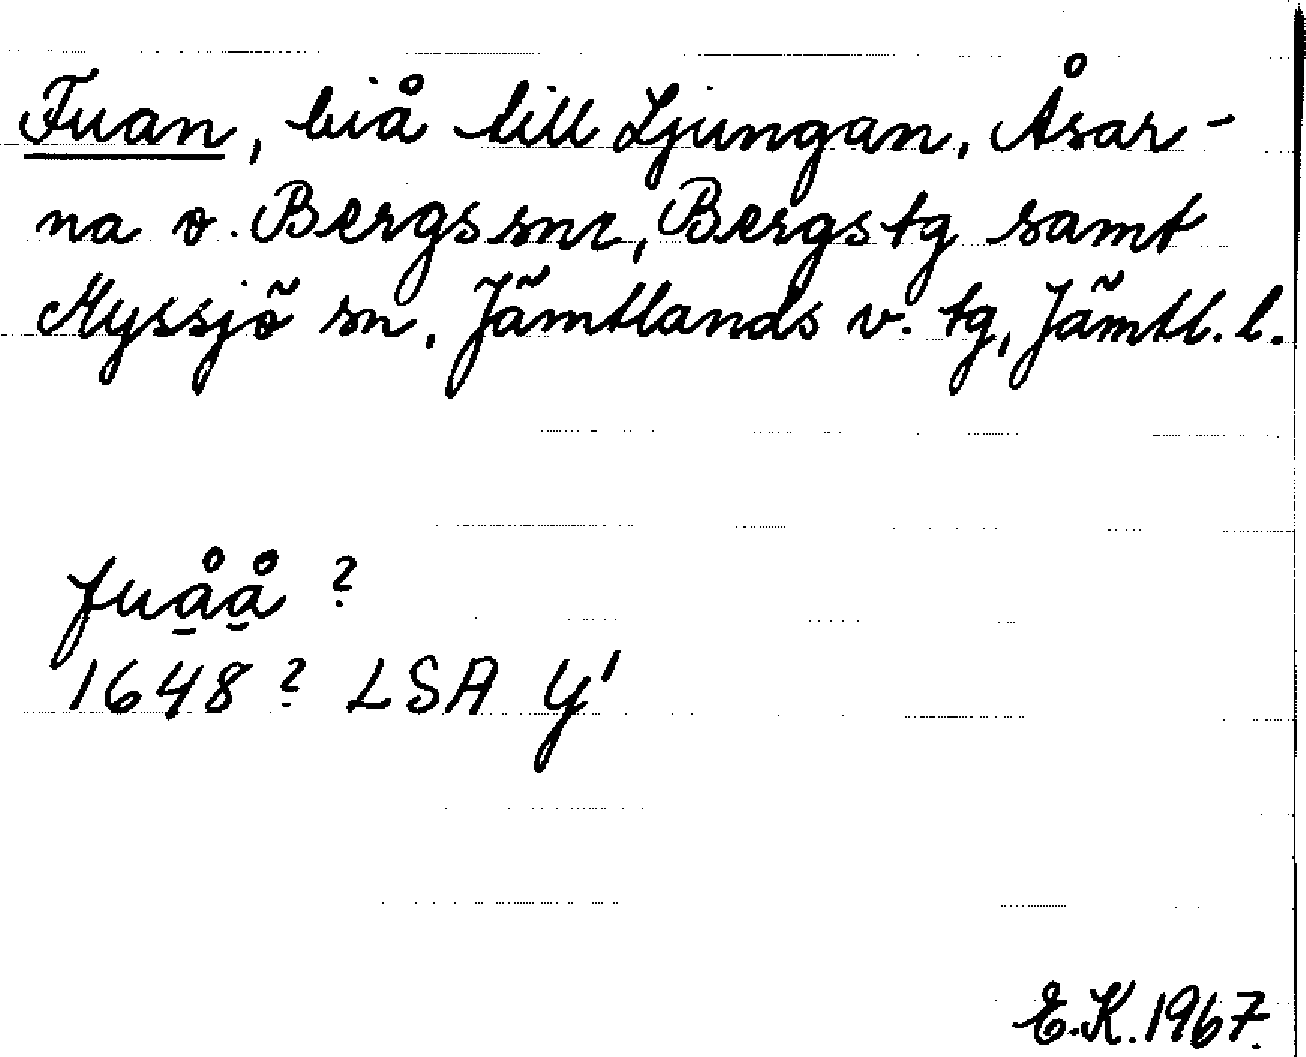 Fuan, biå till Ljungan, Åsar-
na o. Bergs snr, Bergs tg samt
Myssjö sn, Jämtlands v. tg, Jämtl. l.
fuåå ?
1648 ? LSA Y'
E.K. 1967.